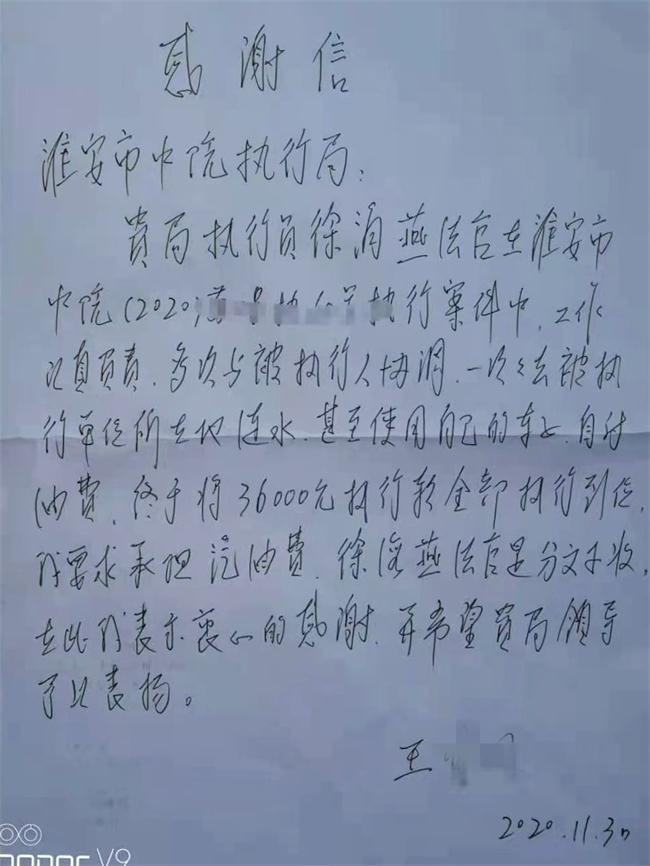 感谢信
淮安市中院执行局：
贵局执行员徐海燕法官在淮安市
中院(2020)执行案件中，工作
认真负责，多次与被执行人协调，一次次去被执
行单位所在地涟水，甚至使用自己的车，自付
油费，终于将36000元执行款全部执行到位，
我要求承担汽油费，徐海燕法官是分文不收，
在此我表示衷心的感谢，并希望贵局领导
予以表扬。
王
2020.11.30
HONOR V9